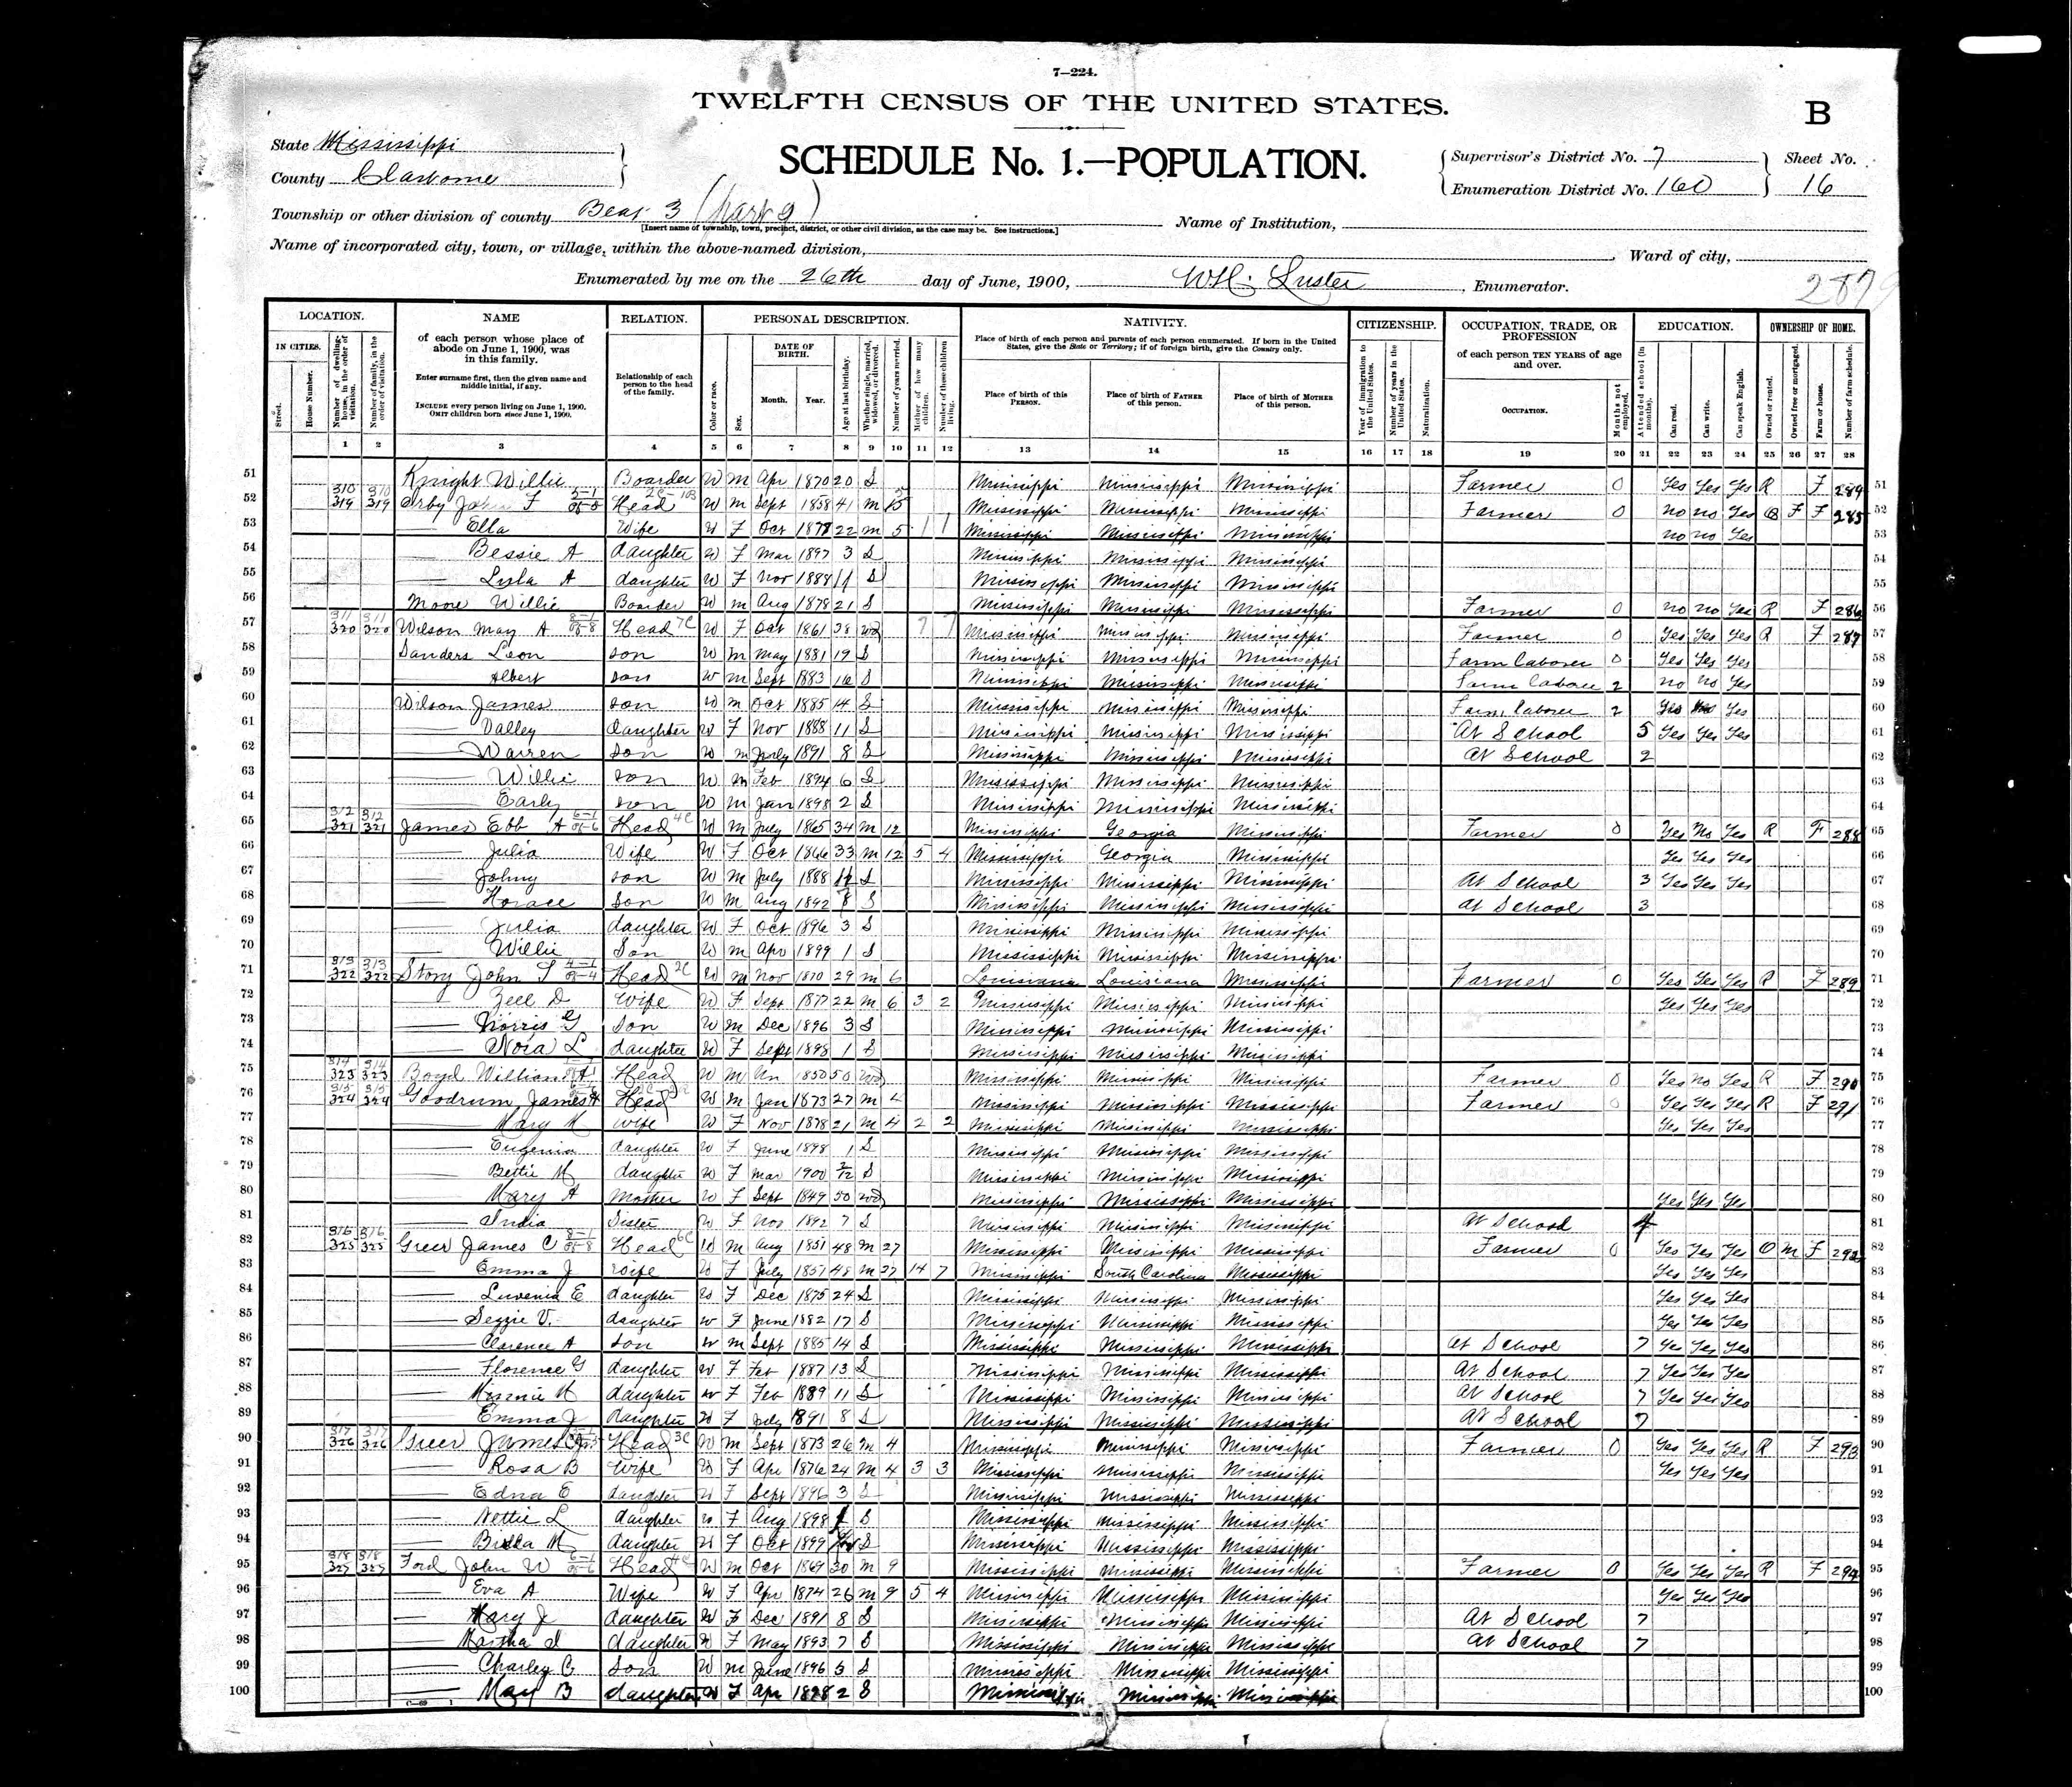 7—224.
TWELFTH CENSUS OF THE UNITED STATES.
B
State Mississippi
County Claiborne
SCHEDULE No. 1.—POPULATION.
Supervisor's District No. 7
Enumeration District No. 160
Sheet No.
16
Township or other division of county Beat 3 (part of)
[Insert name of township, town, precinct, district, or other civil division, as the case may be. See instructions.]
Name of Institution,
Name of incorporated city, town, or village, within the above-named division,
Ward of city,
Enumerated by me on the 26th day of June, 1900, W.H. Luster, Enumerator.
287
LOCATION. NAME RELATION. PERSONAL DESCRIPTION. NATIVITY. CITIZENSHIP. OCCUPATION, TRADE, OR PROFESSION EDUCATION. OWNERSHIP OF HOME.
IN CITIES.
Street.
House Number.
Number of dwelling-house, in the order of visitation.
Number of family, in the order of visitation.
of each person whose place of abode on June 1, 1900, was in this family.
Enter surname first, then the given name and middle initial, if any.
INCLUDE every person living on June 1, 1900.
OMIT children born since June 1, 1900.
Relationship of each person to the head of the family.
Color or race.
Sex.
DATE OF BIRTH.
Month. Year.
Age at last birthday.
Whether single, married, widowed, or divorced.
Number of years married.
Mother of how many children.
Number of these children living.
Place of birth of each person and parents of each person enumerated. If born in the United States, give the State or Territory; if of foreign birth, give the Country only.
Place of birth of this PERSON.
Place of birth of FATHER of this person.
Place of birth of MOTHER of this person.
Year of immigration to the United States.
Number of years in the United States.
Naturalization.
of each person TEN YEARS of age and over.
OCCUPATION.
Months not employed.
Attended school (in months).
Can read.
Can write.
Can speak English.
Owned or rented.
Owned free or mortgaged.
Farm or house.
Number of farm schedule.
1 2 3 4 5 6 7 8 9 10 11 12 13 14 15 16 17 18 19 20 21 22 23 24 25 26 27 28
51 Knight Willie Boarder W M Apr 1870 20 S Mississippi Mississippi Mississippi Farmer 0 Yes Yes Yes R F 284 51
52 319 319 John F Head W M Sept 1858 41 M Mississippi Mississippi Mississippi Farmer 0 no no Yes F F 285 52
53 Ella Wife W F Oct 22 M 5 1 1 Mississippi Mississippi Mississippi no no Yes 53
54 Bessie A daughter W F Mar 1897 3 S Mississippi Mississippi Mississippi 54
55 A daughter W F Nov 1888 11 S Mississippi Mississippi Mississippi 55
56 Moore Willie Boarder W M Aug 1878 21 S Mississippi Mississippi Mississippi Farmer 0 no no Yes R F 286 56
57 320 320 Wilson May A Head W F Oct 1861 38 Wd 7 7 Mississippi Mississippi Mississippi Farmer 0 Yes Yes Yes R F 287 57
58 Sanders Leon son W M May 1881 19 S Mississippi Mississippi Mississippi Farm laborer 0 Yes Yes Yes 58
59 Albert son W M Sept 1883 16 S Mississippi Mississippi Mississippi Farm laborer 2 no no Yes 59
60 Wilson James son W M Oct 1885 14 S Mississippi Mississippi Mississippi Farm laborer 2 Yes 60
61 Valley daughter W F Nov 1888 11 S Mississippi Mississippi Mississippi At School 5 Yes Yes Yes 61
62 Warren son W M July 1891 8 S Mississippi Mississippi Mississippi At School 2 62
63 Willie son W M Feb 1894 6 S Mississippi Mississippi Mississippi 63
64 Early son W M Jan 1898 2 S Mississippi Mississippi Mississippi 64
65 321 321 James Ebb A Head W M July 1865 34 M 12 Mississippi Georgia Mississippi Farmer 0 Yes No Yes R F 288 65
66 Julia Wife W F Oct 1866 33 M 12 5 4 Mississippi Georgia Mississippi Yes Yes Yes 66
67 Johny son W M July 1888 11 S Mississippi Mississippi Mississippi At School 3 Yes Yes Yes 67
68 Horace Son W M Aug 1892 S Mississippi Mississippi Mississippi At School 3 68
69 Julia daughter W F Oct 1896 3 S Mississippi Mississippi Mississippi 69
70 Willie Son W M Apr 1899 1 S Mississippi Mississippi Mississippi 70
71 322 322 Story John S Head W M Nov 1870 29 M 6 Louisiana Louisiana Mississippi Farmer 0 Yes Yes Yes R F 289 71
72 Zell D Wife W F Sept 1877 22 M 6 3 2 Mississippi Mississippi Mississippi Yes Yes Yes 72
73 Norris G son W M Dec 1896 3 S Mississippi Mississippi Mississippi 73
74 Nora L daughter W F Sept 1898 1 S Mississippi Mississippi Mississippi 74
75 323 323 Boyd William A Head W M Un 1850 50 Wd Mississippi Mississippi Mississippi Farmer 0 Yes No Yes R F 290 75
76 324 324 Goodrum James H Head W M Jan 1873 27 M 4 Mississippi Mississippi Mississippi Farmer 0 Yes Yes Yes R F 291 76
77 Mary M Wife W F Nov 1878 21 M 4 2 2 Mississippi Mississippi Mississippi Yes Yes Yes 77
78 Eugenia daughter W F June 1898 1 S Mississippi Mississippi Mississippi 78
79 Bettie M daughter W F Mar 1900 2/12 S Mississippi Mississippi Mississippi 79
80 Mary A Mother W F Sept 1849 50 Wd Mississippi Mississippi Mississippi Yes Yes Yes 80
81 India Sister W F Nov 1892 7 S Mississippi Mississippi Mississippi At School 4 81
82 325 325 Greer James C Head W M Aug 1851 48 M 27 Mississippi Mississippi Mississippi Farmer 0 Yes Yes Yes O M F 292 82
83 Emma J Wife W F July 1851 48 M 27 14 7 Mississippi South Carolina Mississippi Yes Yes Yes 83
84 Luvenia E daughter W F Dec 1875 24 S Mississippi Mississippi Mississippi Yes Yes Yes 84
85 V. daughter W F June 1882 17 S Mississippi Mississippi Mississippi Yes Yes Yes 85
86 Clarence A son W M Sept 1885 14 S Mississippi Mississippi Mississippi At School 7 Yes Yes Yes 86
87 Florence G daughter W F Feb 1887 13 S Mississippi Mississippi Mississippi At School 7 Yes Yes Yes 87
88 Minnie M daughter W F Feb 1889 11 S Mississippi Mississippi Mississippi At School 7 Yes Yes Yes 88
89 Emma J daughter W F July 1891 8 S Mississippi Mississippi Mississippi At School 7 89
90 326 326 Greer James Head W M Sept 1873 26 M 4 Mississippi Mississippi Mississippi Farmer 0 Yes Yes Yes R F 293 90
91 Rosa B Wife W F Apr 1876 24 M 4 3 3 Mississippi Mississippi Mississippi Yes Yes Yes 91
92 Edna E daughter W F Sept 1896 3 S Mississippi Mississippi Mississippi 92
93 Nettie L daughter W F Aug 1898 1 S Mississippi Mississippi Mississippi 93
94 M daughter W F Oct 1899 S Mississippi Mississippi Mississippi 94
95 327 327 Ford John W Head W M Oct 1869 30 M 9 Mississippi Mississippi Mississippi Farmer 0 Yes Yes Yes R F 294 95
96 Eva A Wife W F Apr 1874 26 M 9 5 4 Mississippi Mississippi Mississippi Yes Yes Yes 96
97 Mary J daughter W F Dec 1891 8 S Mississippi Mississippi Mississippi At School 7 97
98 Martha I daughter W F May 1893 7 S Mississippi Mississippi Mississippi At School 7 98
99 Charley C Son W M June 1896 3 S Mississippi Mississippi Mississippi 99
100 May B daughter W F Apr 1898 2 S Mississippi Mississippi Mississippi 100